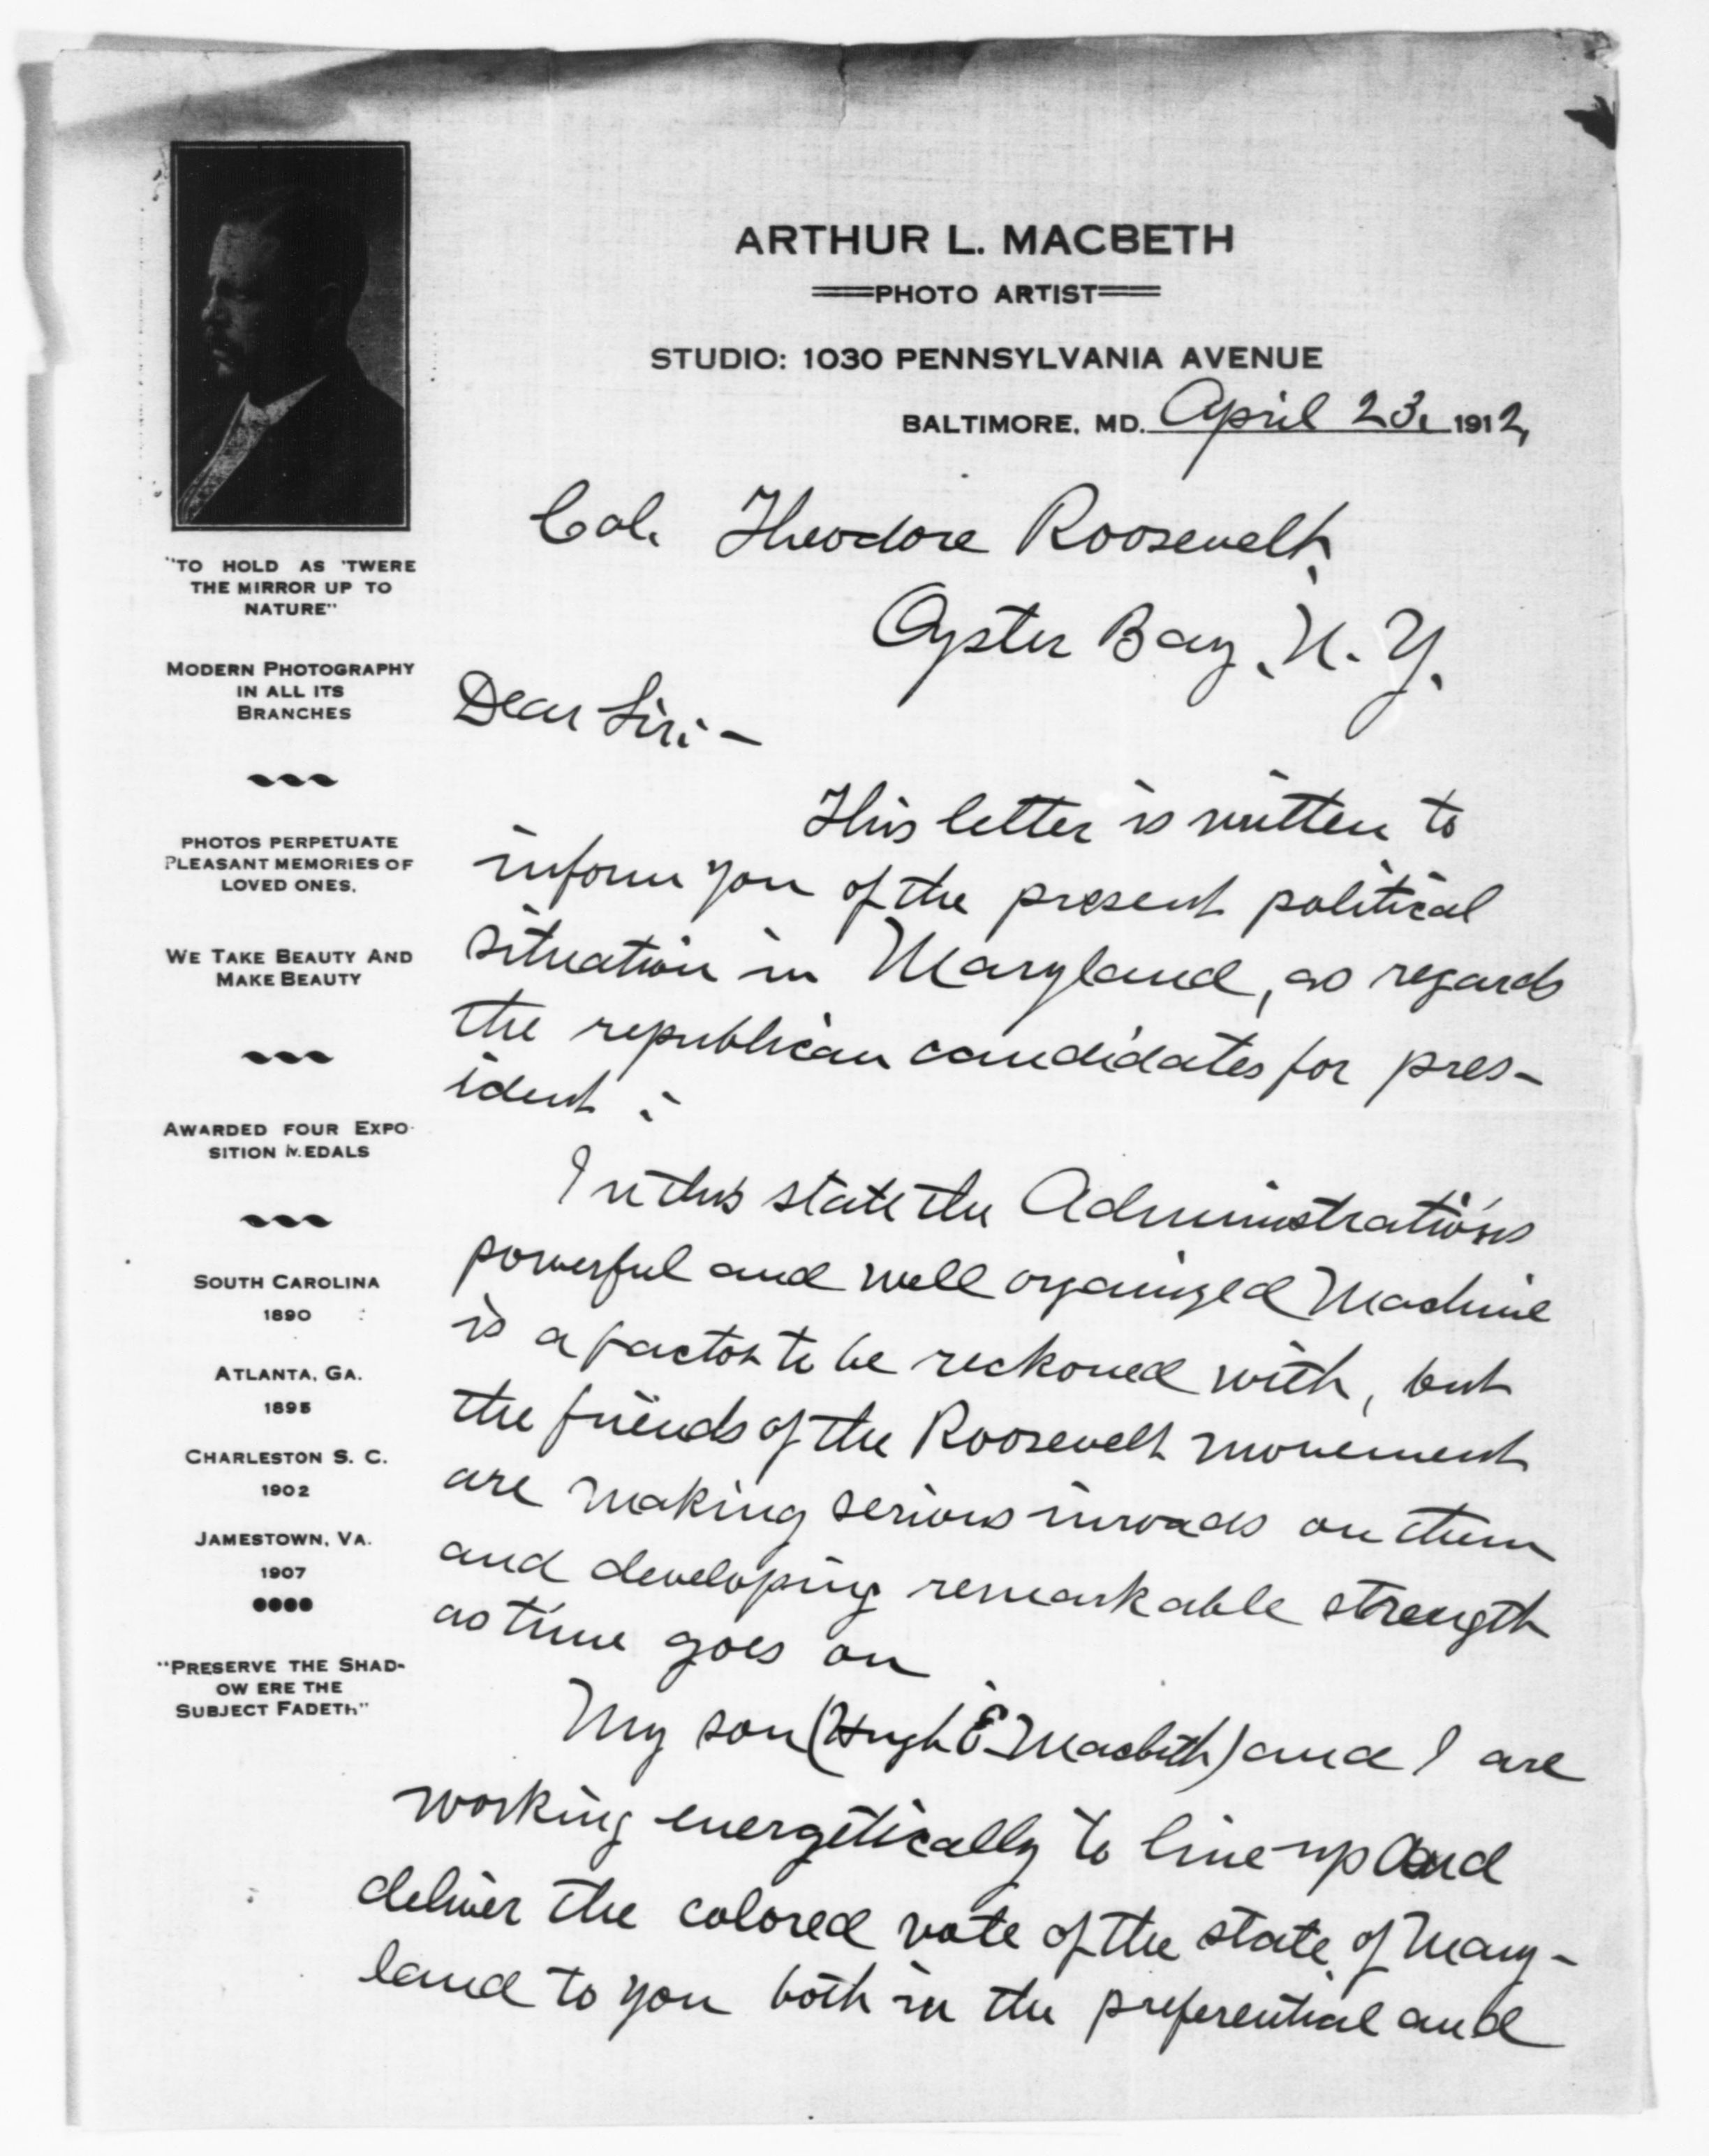 ARTHUR L. MACBETH
PHOTO ARTIST
STUDIO: 1030 PENNSYLVANIA AVENUE
BALTIMORE, MD. April 23, 1912,
"TO HOLD AS 'TWERE
THE MIRROR UP TO
NATURE"
MODERN PHOTOGRAPHY
IN ALL ITS
BRANCHES
PHOTOS PERPETUATE
PLEASANT MEMORIES OF
LOVED ONES.
WE TAKE BEAUTY AND
MAKE BEAUTY
AWARDED FOUR EXPO-
SITION MEDALS
SOUTH CAROLINA
1890
ATLANTA, GA.
1895
CHARLESTON S. C.
1902
JAMESTOWN, VA.
1907
"PRESERVE THE SHAD-
OW ERE THE
SUBJECT FADETH"
Col. Theodore Roosevelt,
Oyster Bay, N. Y.
Dear Sir:-
This letter is written to
inform you of the present political
situation in Maryland, as regards
the republican candidates for pres-
ident :
In this state the Administration's
powerful and well organized Machine
is a factor to be reckoned with, but
the friends of the Roosevelt movement
are making serious inroads on them
and developing remarkable strength
as time goes on.
My son (Hugh E. Macbeth) and I are
working energetically to line-up and
deliver the colored vote of the state of Mary-
land to you both in the preferential and